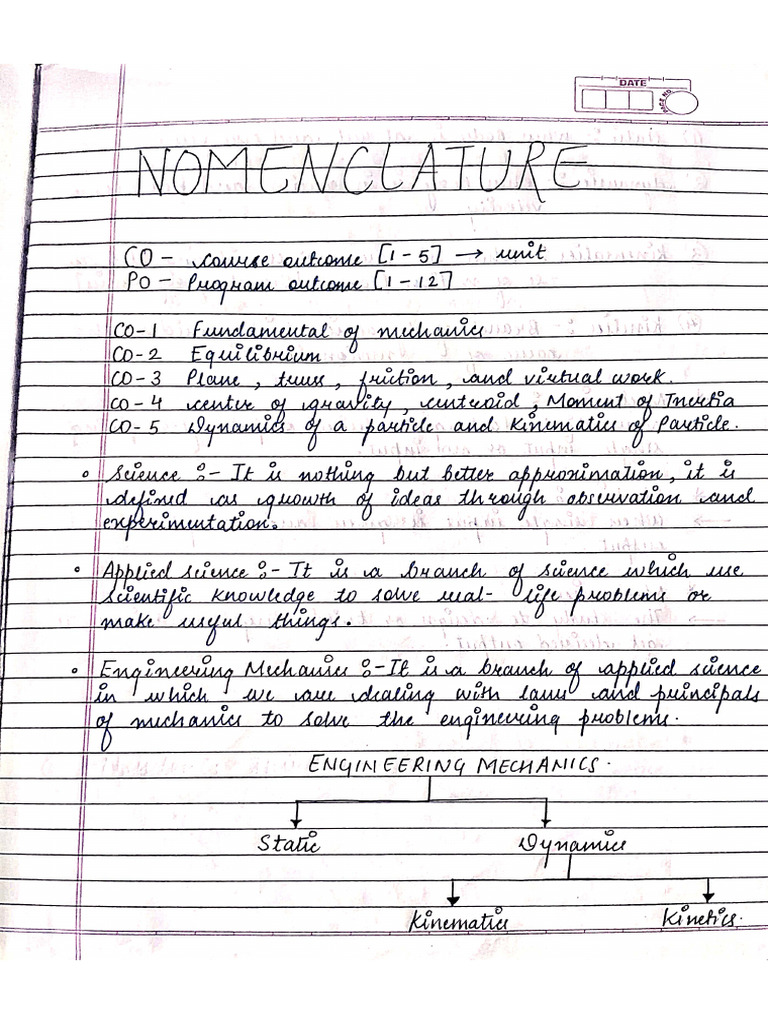 DATE
PAGE NO.
NOMENCLATURE
CO - course outcome [1-5] → unit
PO - Program outcome [1-12]
CO-1 Fundamental of mechanics
CO-2 Equilibrium
CO-3 Plane, truss, friction, and virtual work.
CO-4 center of gravity, centroid, Moment of Inertia
CO-5 Dynamics of a particle and Kinematics of Particle.
• Science :- It is nothing but better approximation, it is
defined as growth of ideas through observation and
experimentation.
• Applied science :- It is a branch of science which use
scientific knowledge to solve real-life problems or
make useful things.
• Engineering Mechanics :- It is a branch of applied science
in which we are dealing with laws and principals
of mechanics to solve the engineering problems.
ENGINEERING MECHANICS.
Static Dynamics
Kinematics Kinetics.